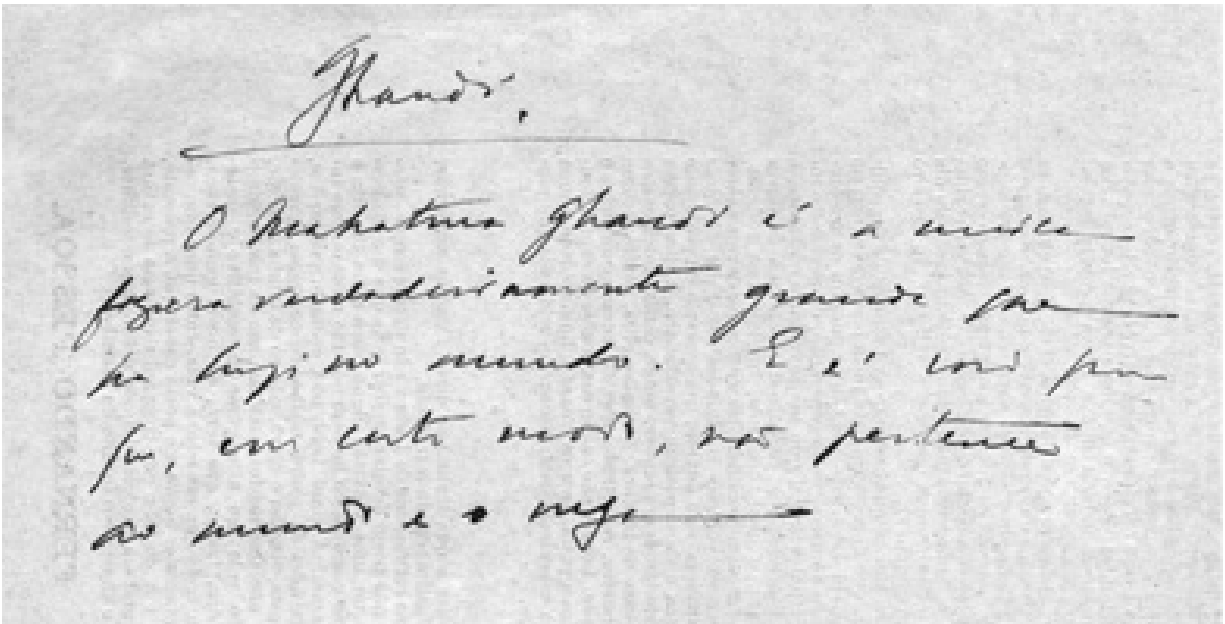 Ghandi.
O Mahatma Ghandi é a unica
figura verdadeiramente grande que
ha hoje no mundo. E é por
que, em certo modo, não pertence
ao mundo e o nega
FERNANDO PESSOA